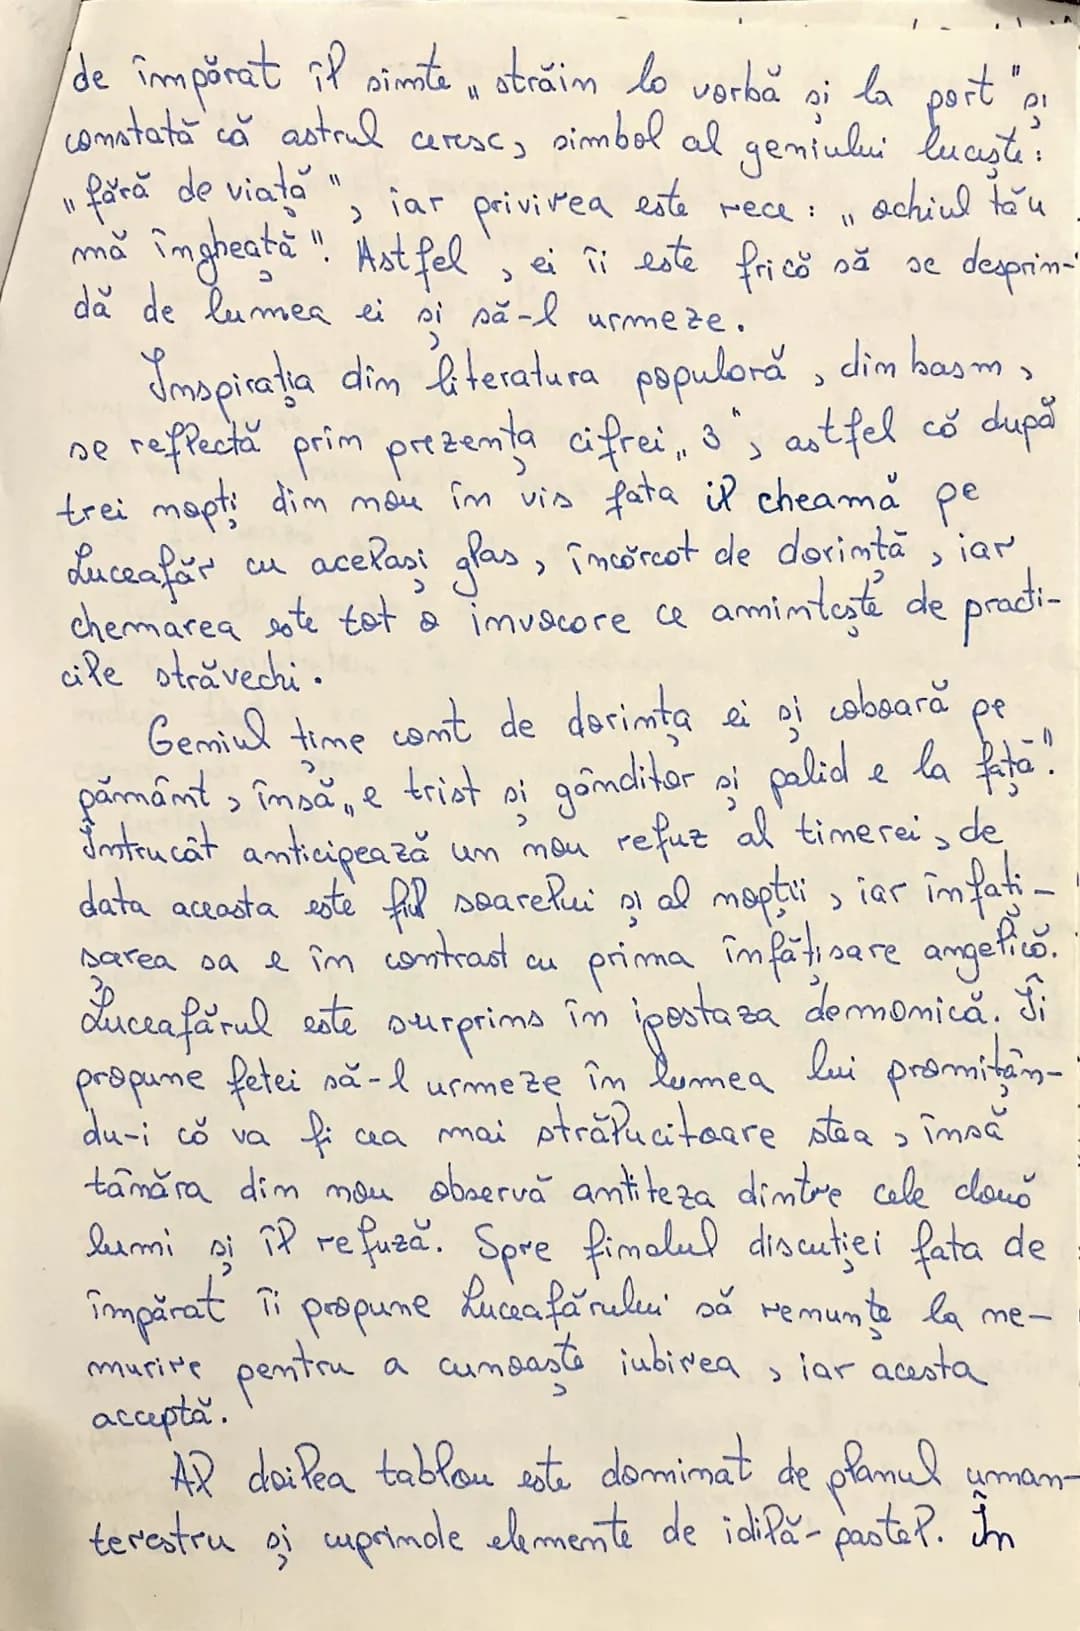 de împărat îl simte „străin la vorbă și la port" și
constată că astrul ceresc, simbol al geniului lucește:
„fără de viață", iar privirea este rece: „ochiul tău
mă îngheață". Astfel, ei îi este frică să se desprin-
dă de lumea ei și să-l urmeze.
Inspirația din literatura populară, din basm,
se reflectă prin prezența cifrei „3", astfel că după
trei nopți din nou în vis fata il cheamă pe
Luceafăr cu același glas, încărcat de dorință, iar
chemarea este tot o invocare ce amintește de practi-
cile străvechi.
Geniul ține cont de dorința ei și coboară pe
pământ, însă „e trist și gânditor și palid e la față".
Întrucât anticipează un nou refuz al tinerei, de
data aceasta este fiul soarelui și al nopții, iar înfați-
șarea sa e în contrast cu prima înfățisare angelică.
Luceafărul este surprins în ipostaza demonică. Îi
propune fetei să-l urmeze în lumea lui promițân-
du-i că va fi cea mai strălucitoare stea, însă
tânăra din nou observă antiteza dintre cele două
lumi și îl refuză. Spre finalul discuției fata de
împărat îi propune Luceafărului să renunțe la ne-
murire pentru a cunoaște iubirea, iar acesta
acceptă.
Al doilea tablou este dominat de planul uman-
terestru și cuprinde elemente de idilă-pastel. În